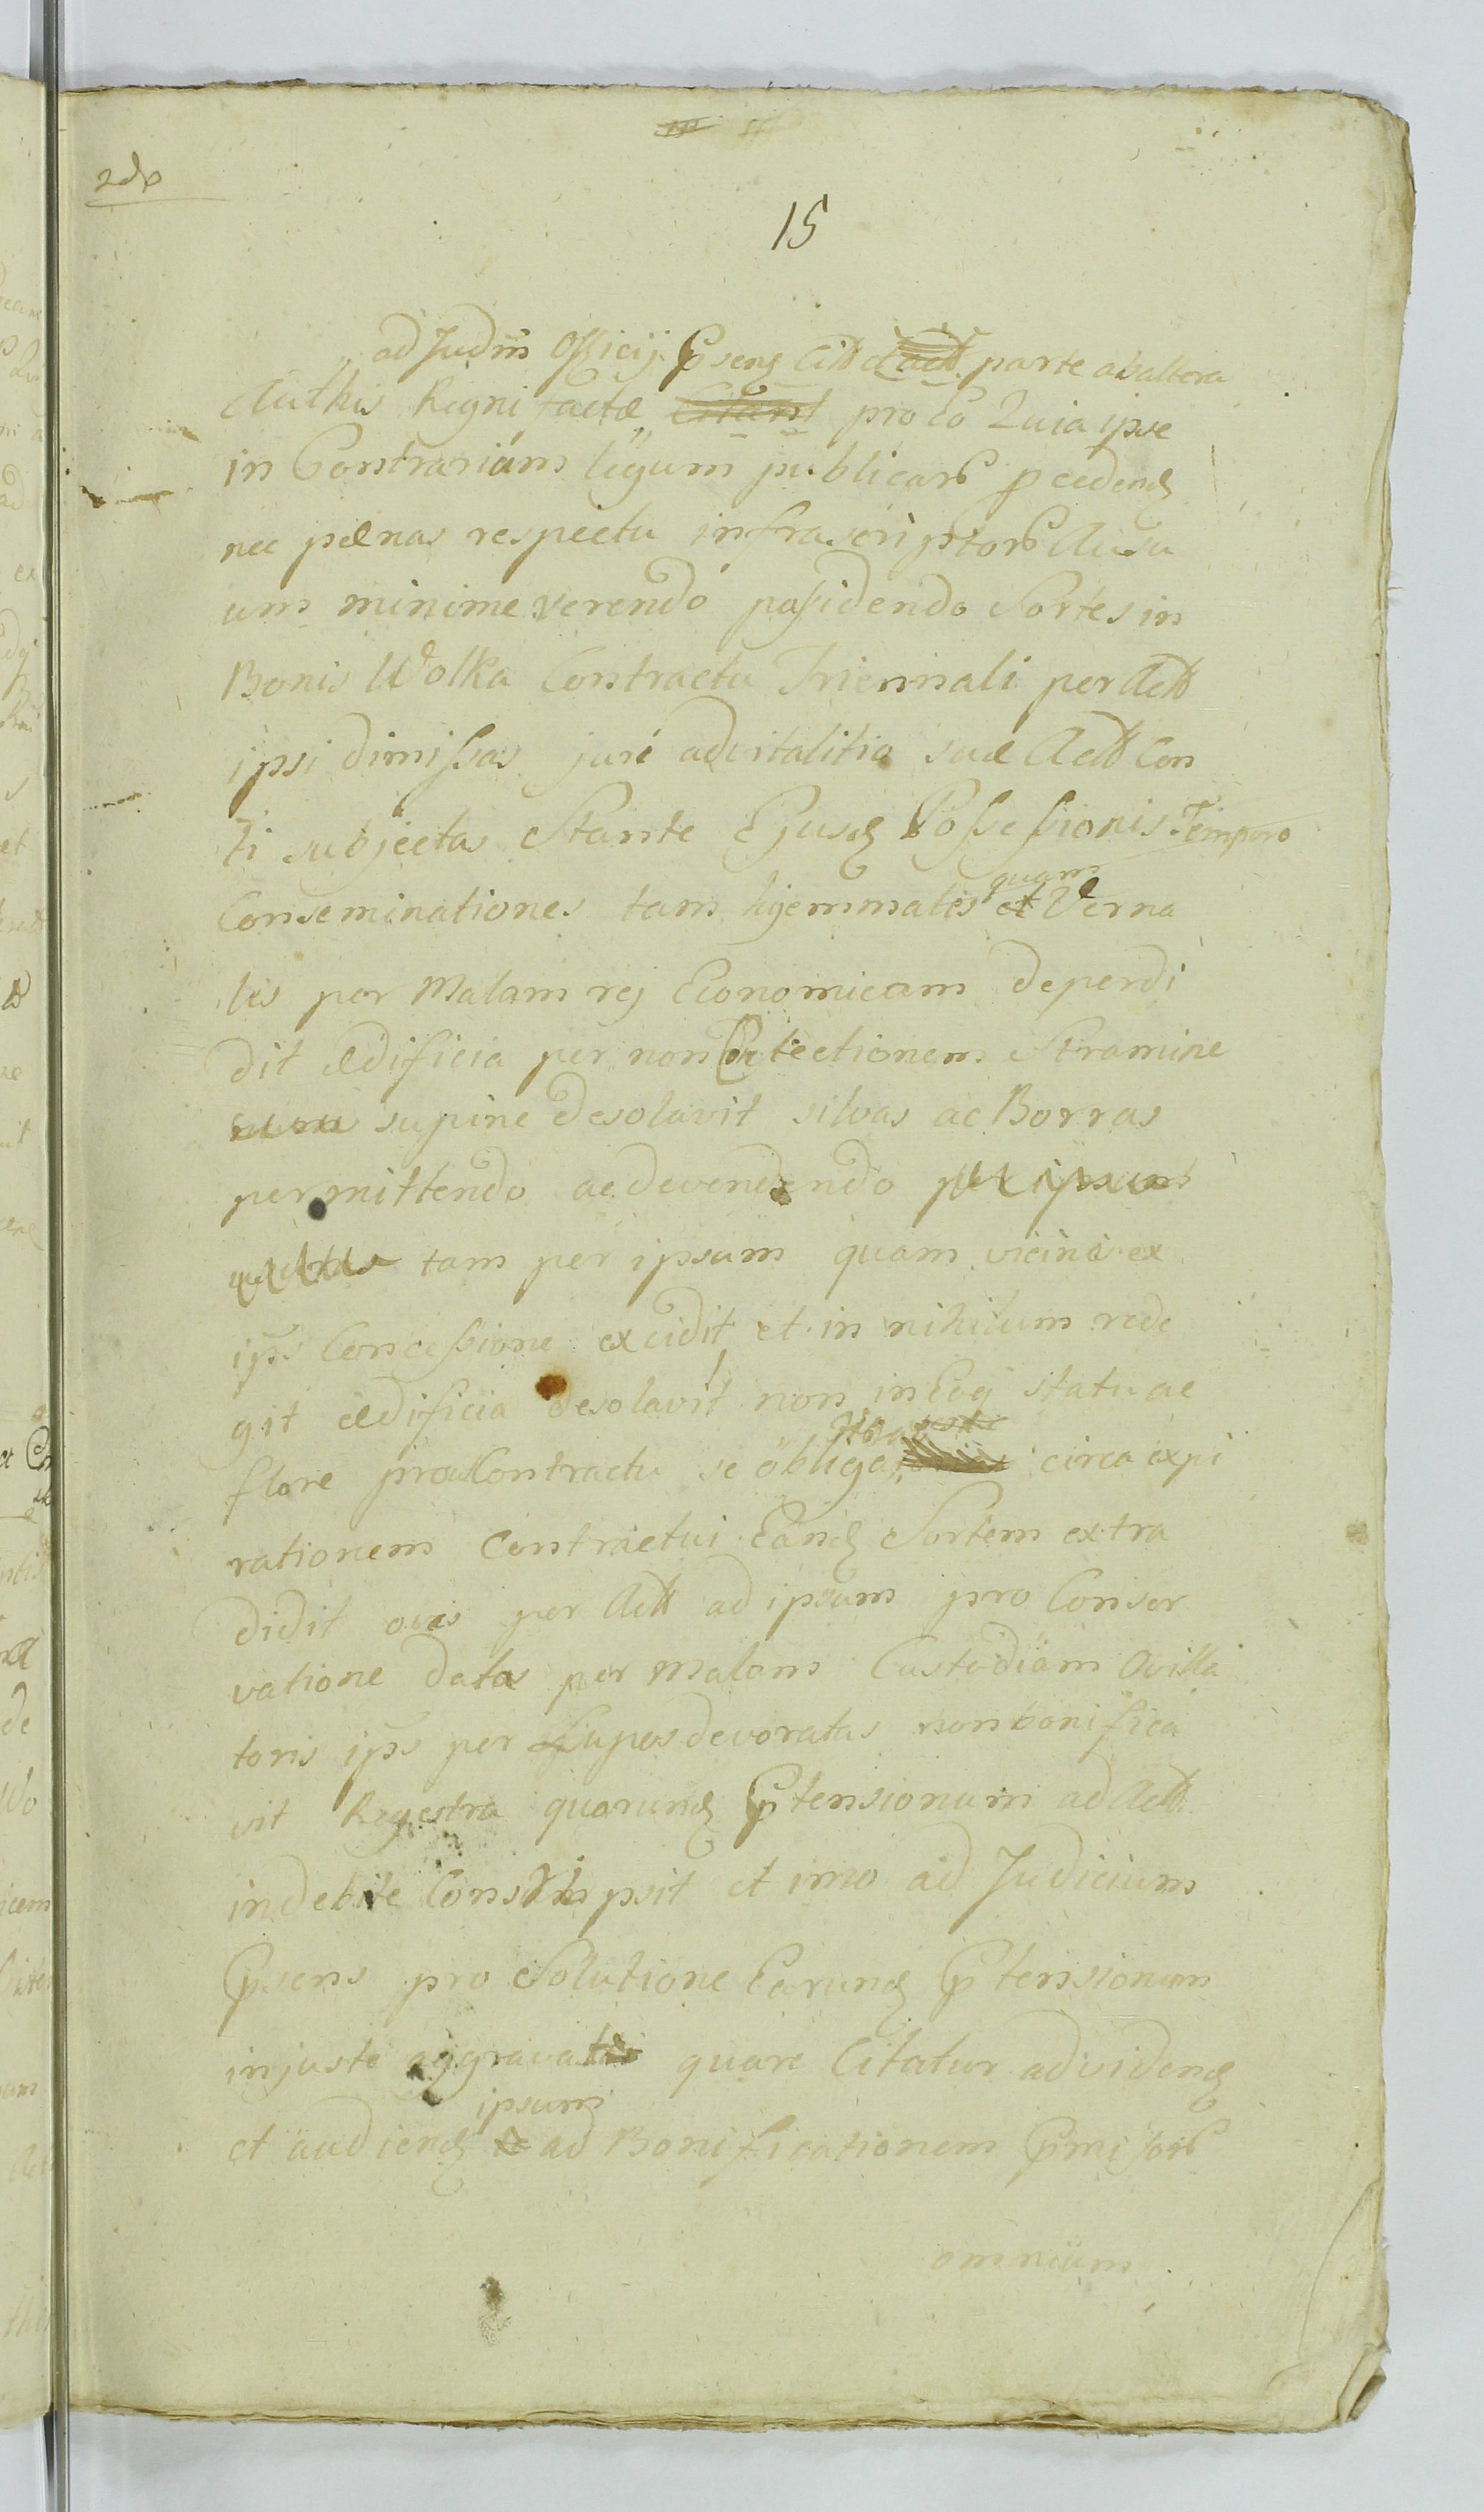 2do
15
ad Judm Officij Psens Citt et parte ab altera
Authis Regni factæ pro Eo Quia ipse
in Contrarium legum publicarb pcedend
nec pœnas respectu infrascriptorb Ausu
um minime verendo possidendo Sortes in
Bonis Wolka Contractu Triennali per Actt
ipsi dimissas juri advitalitio suæ Actt Con
ti subjectas Stante Ejusd Possessionis Tempore
Conseminationes tam hyemmales quam Verna
les per Malam rej Economicam deperdi
dit ædificia per non tectionem Stramine
supine desolavit silvas ac Borras
permittendo ac devendendo per ipsum
tam per ipsum quam vicinis ex
ips Concessione excidit et in nihilum rede
git ædificia desolavit non in Eoq statu ac
flore Contractu se obliga circa expi
rationem Contractui Eand Sortem extra
didit oves per Actt ad ipsum pro Conser
vatione datas per malam Custodiam Ovilla
toris ips per Lupos devoratas non bonifica
vit Regestra quorund Ptensionum ad Actt
indebite Conscripsit et imo ad Judicium
Psens pro Solutione Earund Ptensionum
injuste aggravat quare Citatur ad vidend
ipsum
et audiend ad Bonificationem Pmissorb
omnium